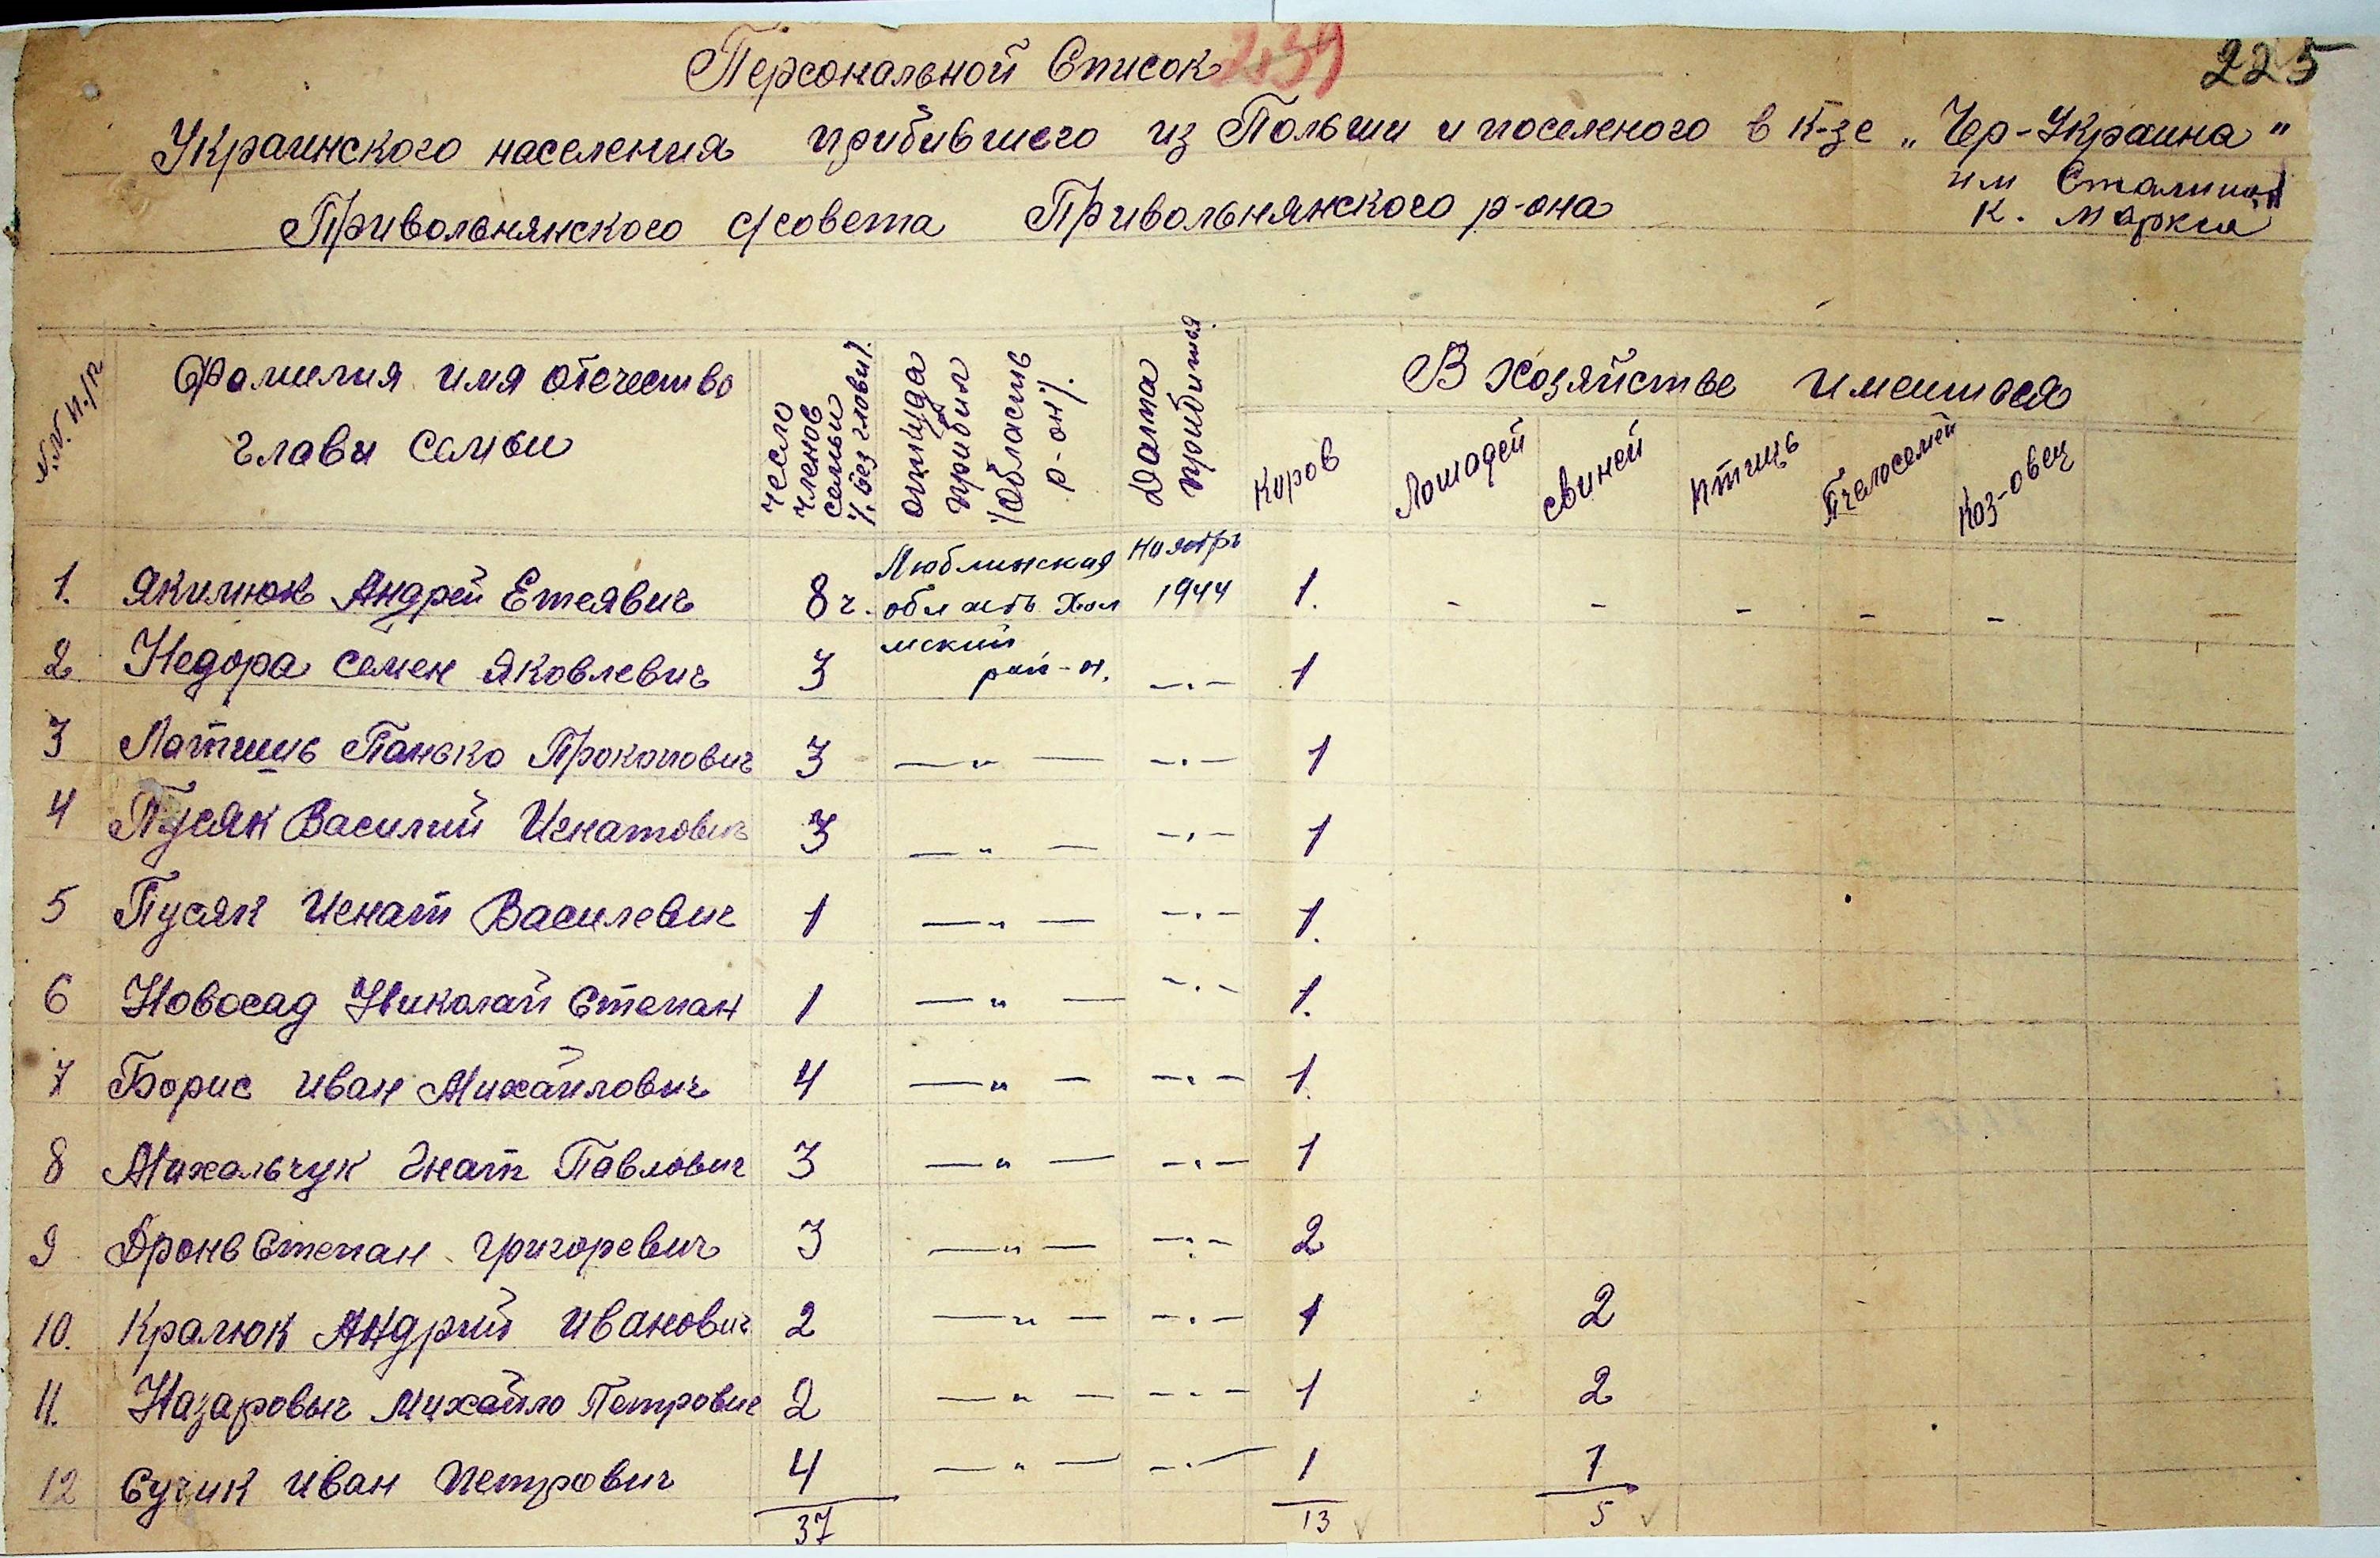 Персональной Список 239
225
Украинского населения прибившего из Польши и поселеного в к-зе „Чер-Украина"
им Сталина
К. Маркса
Привольнянского с/совета Привольнянского р-она
№№ п/п
Фамилия имя отечество
глави семьи
число
членов
семьи
/. без глови/.
откуда
прибил
/область
р-он/.
Дата
прибития
В хозяйстве имеиться
Коров
Лошадей
свиней
птиць
Пчелосемей
Коз-овец
1. Якимюк Андрей Етсявич 8 ч. Люблинская область Хол ноябрь 1944 1. - - - - - -
мский
2 Недора Семен Яковлевич 3 рай-н. -.- 1
3 Латишь Панько Прокопович 3 — " — -.- 1
4 Пусяк Василий Игнатович 3 — " — -.- 1
5 Пусяк Игнат Василевич 1 — " — -.- 1.
6 Новосад Николай Степан 1 — " — -.- 1.
7 Борис Иван Михайлович 4 — " — -.- 1.
8 Михальчук Гнат Павлович 3 — " — -.- 1
9 Дронв Степан Григоревич 3 — " — -.- 2
10. Кралюк Андрий Иванович 2 — " — -.- 1 2
11. Назаровыч Михайло Петрович 2 — " — -.- 1 2
12 Сучик Иван Петрович 4 — " — -.- 1 1
37 13 5